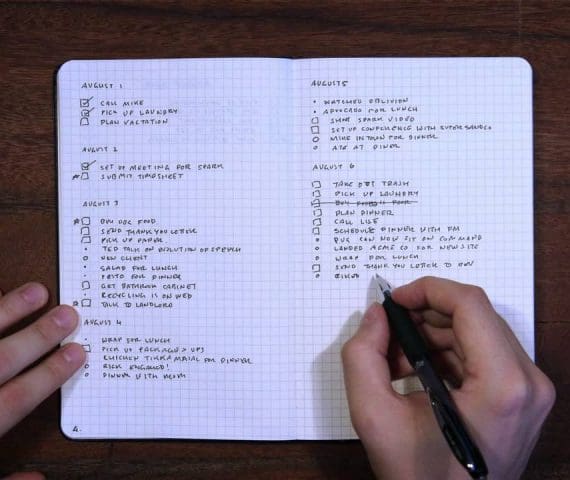 AUGUST 1
CALL MIKE
PICK UP LAUNDRY
PLAN VACTATION
AUGUST 2
SET UP MEETING FOR SPARK
SUBMIT TIMESHEET
AUGUST 3
BUY DOG FOOD
SEND THANK YOU LETTER
PICK UP PAPER
TED TALK ON EVOLUTION OF SPEECH
NEW CLIENT
SALAD FOR LUNCH
PESTO FOR DINNER
GET BATHROOM CABINET
RECYCLING IS ON WED
TALK TO LANDLORD
AUGUST 4
WRAP FOR LUNCH
PICK UP PACKAGE > UPS
CHICKEN TIKKA MASALA FOR DINNER
RICK ENGAGED!
DINNER WITH
4.
AUGUST 5
WATCHED OBLIVION
AVOCADO FOR LUNCH
SPARK VIDEO
SET UP CONFERENCE WITH
MIKE IN TOWN FOR DINNER
ATE AT DINER
AUGUST 6
TAKE OUT TRASH
PICK UP LAUNDRY
BUY FOOD
PLAN DINNER
CALL LISE
SCHEDULE DINNER WITH
CAN NOW SIT ON COMMAND
LANDED ACME CO FOR NEW SITE
WRAP FOR LUNCH
SEND THANK YOU LETTER TO